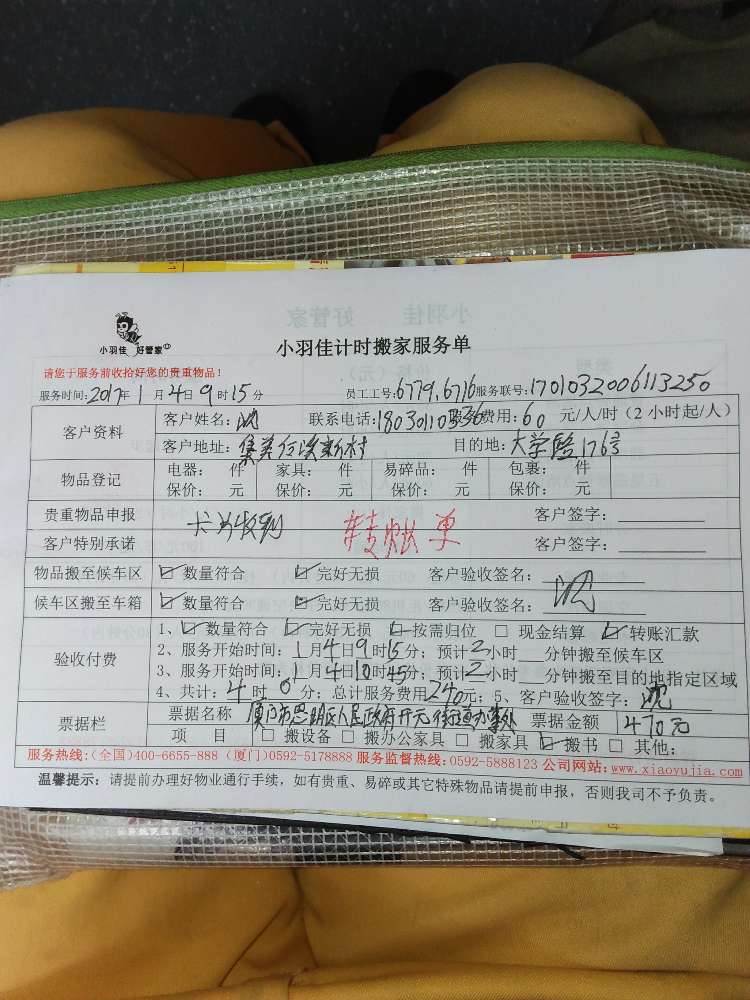 小羽佳 好管家
小羽佳计时搬家服务单
请您于服务前收拾好您的贵重物品！
服务时间：2017年1月4日9时15分 员工工号：6779,6716 服务联号：1701032006113250
客户资料
客户姓名：沈 联系电话：18030110336 服务费用：60 元/人/时（2 小时起/人）
客户地址：集美 新村 目的地：大学路176号
物品登记
电器： 件 家具： 件 易碎品： 件 包裹： 件
保价： 元 保价： 元 保价： 元 保价： 元
贵重物品申报 卡片收到 转账单 客户签字：
客户特别承诺 客户签字：
物品搬至候车区 ☑ 数量符合 ☑ 完好无损 客户验收签名：沈
候车区搬至车箱 ☑ 数量符合 ☑ 完好无损 客户验收签名：
验收付费
1、☑ 数量符合 ☑ 完好无损 ☑ 按需归位 □ 现金结算 ☑ 转账汇款
2、服务开始时间：1月4日9时15分；预计2小时 分钟搬至候车区
3、服务开始时间：1月4日10时45分；预计2小时 分钟搬至目的地指定区域
4、共计：4时0分；总计服务费用240元；5、客户验收签字：沈
票据栏
票据名称 厦门市思明区人民政府开元街道办事处 票据金额 470元
项 目 □ 搬设备 □ 搬办公家具 □ 搬家具 ☑ 搬书 □ 其他：
服务热线：（全国）400-6655-888（厦门）0592-5178888 服务监督热线：0592-5888123 公司网站：www.xiaoyujia.com
温馨提示：请提前办理好物业通行手续，如有贵重、易碎或其它特殊物品请提前申报，否则我司不予负责。